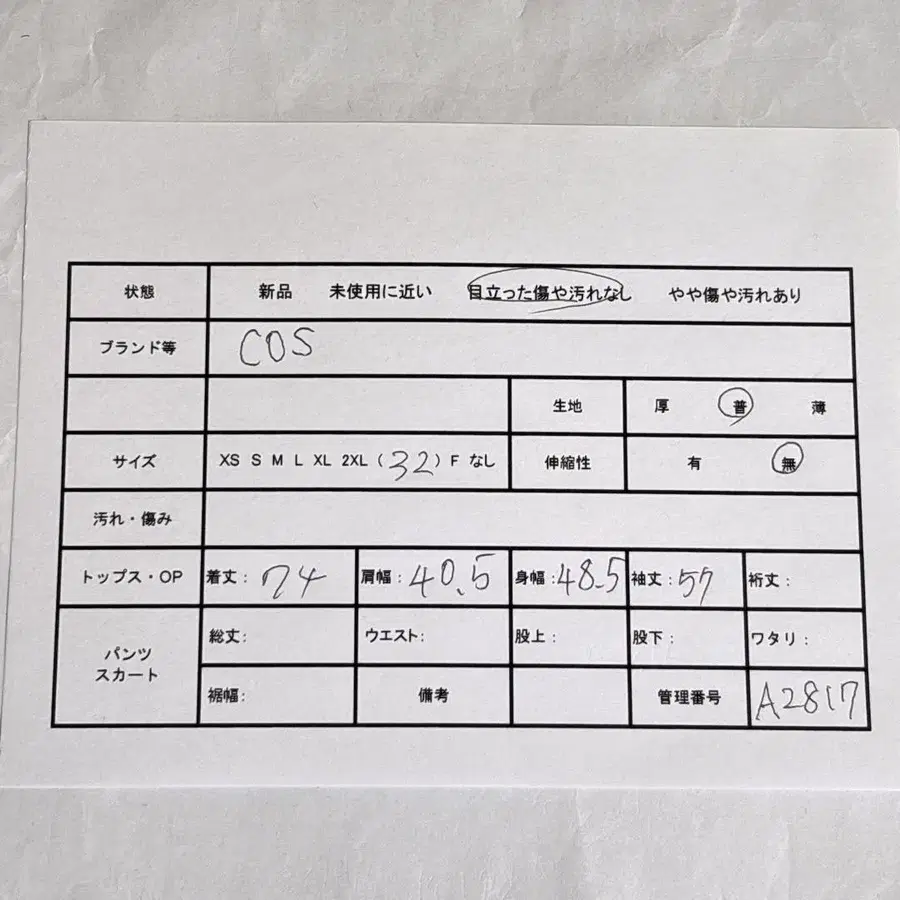 状態 新品 未使用に近い 目立った傷や汚れなし やや傷や汚れあり
ブランド等 COS
生地 厚 普 薄
サイズ XS S M L XL 2XL (32) F なし 伸縮性 有 無
汚れ・傷み
トップス・OP 着丈: 74 肩幅: 40.5 身幅: 48.5 袖丈: 57 裄丈:
パンツ
スカート
総丈: ウエスト: 股上: 股下: ワタリ:
裾幅: 備考 管理番号 A2817